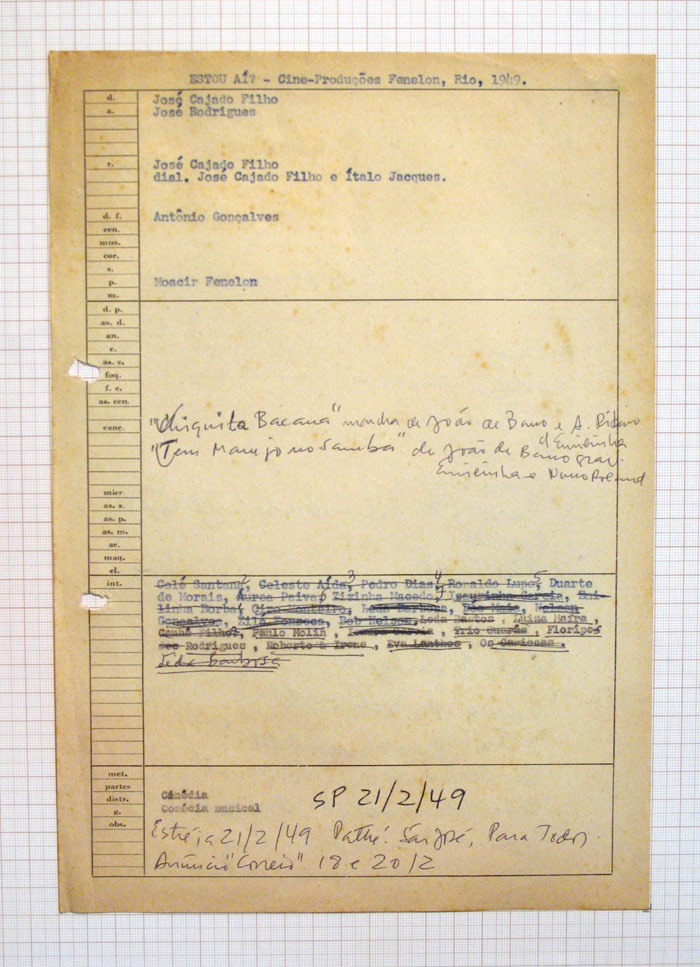 ESTOU AÍ? - Cine-Produções Fenelon, Rio, 1949.
d. José Cajado Filho
a. José Rodrigues
r. José Cajado Filho
dial. José Cajado Filho e Ítalo Jacques.
d. f. Antônio Gonçalves
cen.
mus.
cor.
s.
p. Moacir Fenelon
m.
d. p.
as. d.
an.
c.
as. c.
foq.
f. c.
as. cen.
canç. "Chiquita Bacana" marcha de João de Barro e A. Ribeiro
d'Emilinha
"Tem Marejo no Samba" de João de Barro grav.
Emilinha e Nuno Roland
micr
as. s.
as. p.
as. m.
ac.
maq.
el.
int. Colé Santana, Celeste Aída, Pedro Dias, Ronaldo Lupo, Duarte
de Morais, Áurea Paiva, Zizinha Macedo, Isaurinha Garcia, Emi-
linha Borba, Ciro Monteiro, Leda Barbosa, Déo Maia, Nelson
Gonçalves, Zilá Fonseca, Bob Nelson, Leda Bastos, Luiza Maíra,
Cauhé Filho, Paulo Molin, Garcia, Trio Guarás, Floripe-
des Rodrigues, Roberto & Irene, Eva Lanthos, Os Cariocas.
Leda Barbosa
met.
partes
distr. Cinédia
g. Comédia musical SP 21/2/49
obs. Estréia 21/2/49 Pathé. São José, Para Todos.
Anúncio "Correio" 18 e 20/2